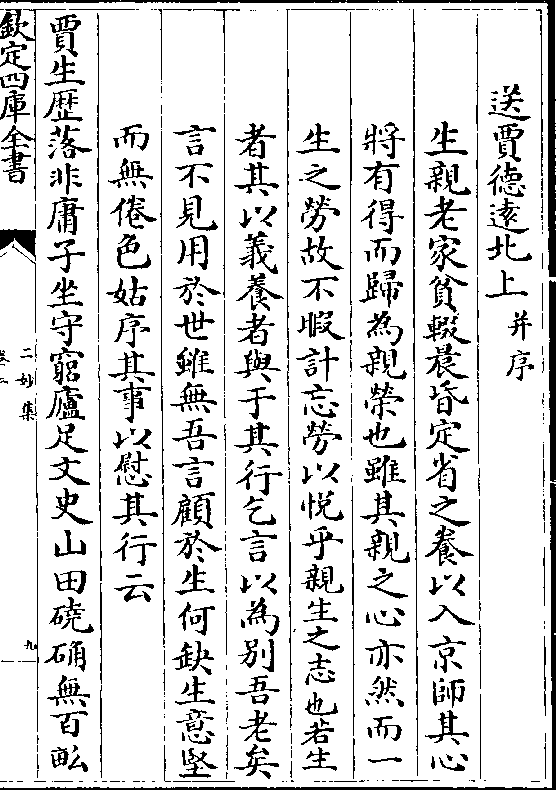 送賈德逺北上并序
生親老家貧輟晨昏定省之養以入京師其心
將有得而歸為親榮也雖其親之心亦然而一
生之勞故不暇計忘勞以悅乎親生之志也若生
者其以義養者與于其行乞言以為別吾老矣
言不見用於世雖無吾言顧於生何缺生意堅
而無倦色姑序其事以慰其行云
賈生歴落非庸子坐守窮廬足文史山田磽确無百畝
欽定四庫全書
二妙集
卷二
九